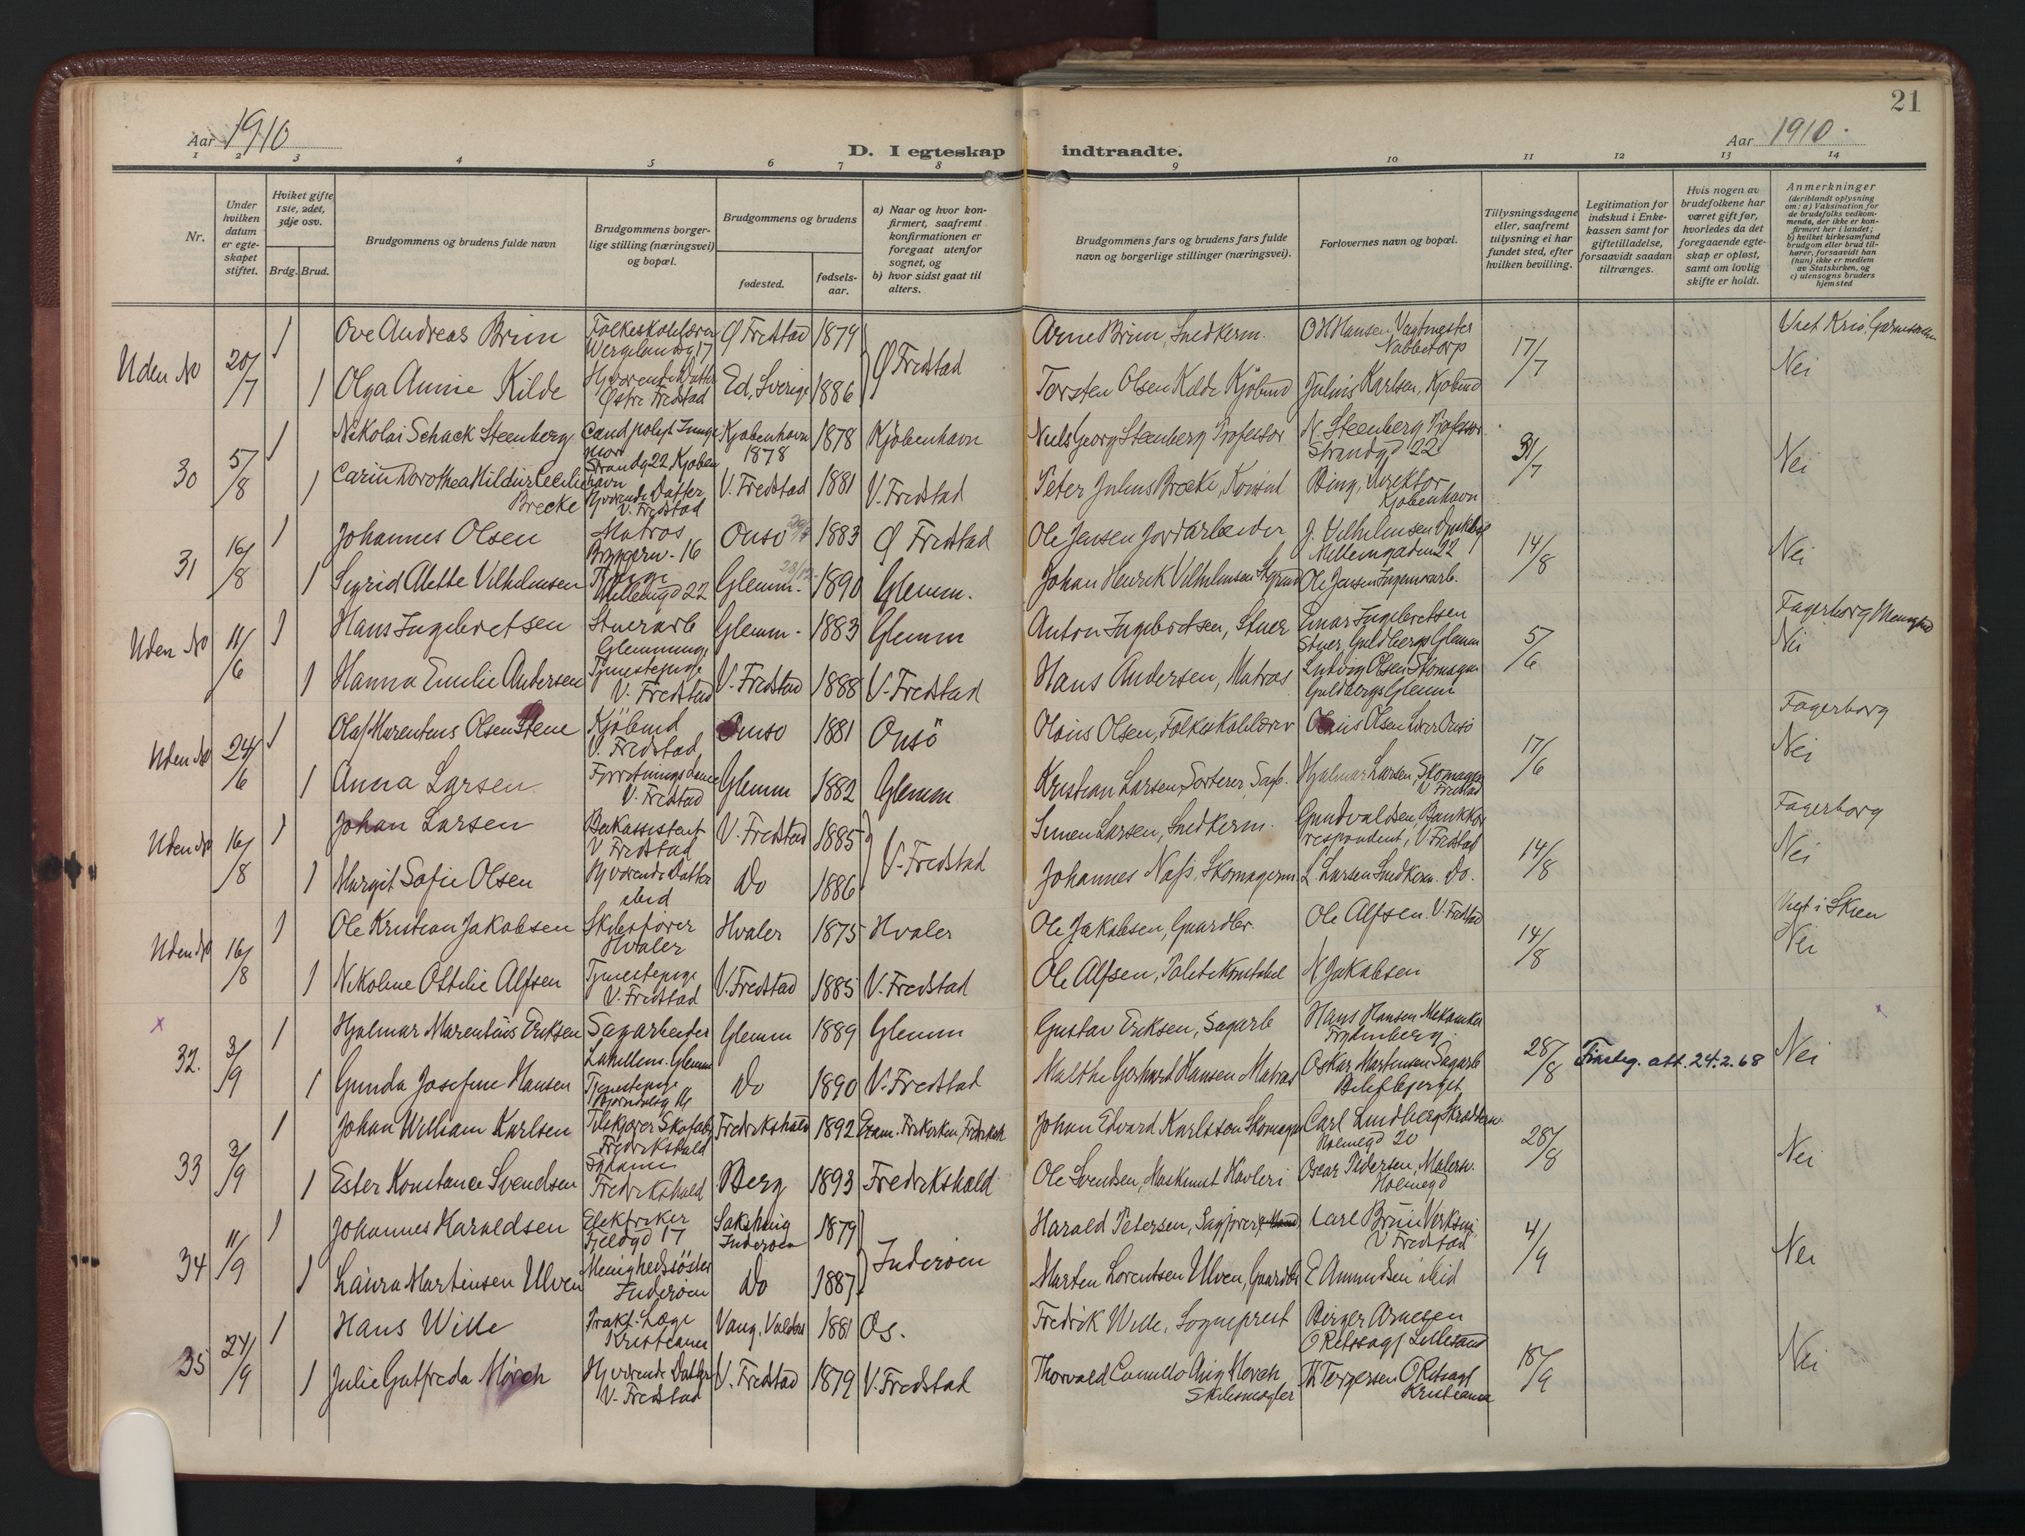 21
Aar 1910
D. I egteskap indtraadte.
Aar 1910.
1 2 3 4 5 6 7 8 9 10 11 12 13 14
Nr.
Under hvilken datum er egteskapet stiftet.
Hviket gifte 1ste, 2det, 3dje osv.
Brdg. Brud.
Brudgommens og brudens fulde navn
Brudgommens borgerlige stilling (næringsvei) og bopæl.
Brudgommens og brudens
fødested.
fødselsaar.
a) Naar og hvor konfirmert, saafremt konfirmationen er foregaat utenfor sognet, og
b) hvor sidst gaat til alters.
Brudgommens fars og brudens fars fulde navn og borgerlige stillinger (næringsvei).
Forlovernes navn og bopæl.
Tillysningsdagene eller, saafremt tilysning ei har fundet sted, efter hvilken bevilling.
Legitimation for indskud i Enkekassen samt for giftetilladelse, forsaavidt saadan tiltrænges.
Hvis nogen av brudefolkene har været gift før, hvorledes da det foregaaende egteskap er opløst, samt om lovlig skifte er holdt.
Anmerkninger
(deriblandt oplysning om: a) Vaksination for de brudefolks vedkommende, der ikke er konfirmert her i landet; b) hvilket kirkesamfund brudgom eller brud tilhører, forsaavidt han (hun) ikke er medlem av Statskirken, og c) utensogns bruders hjemsted
Uden No 20/7 1 Ove Andreas Brun Folkeskolelærer Wergelandsg 17 Ø Fredstad 1879 Ø Fredstad Arne Brun, Snedkerm. O H Hansen Vagtmester Nabbetorp 17/7 Nei
1 Olga Annie Kilde Hjværende Datter Østre Fredstad Ed, Sverige 1886 Torsten Olsen Kilde Kjøbmd Julius Karlsen, Kjøbmd
30 5/8 1 Nikolai Schack Steenberg Cand polyt Strandg 22 Kjøbenhavn Kjøbenhavn 1878 1878 Kjøbenhavn Niels Georg Steenberg Professor N. Steenberg Professor Strandgd 22 31/7 Nei
1 Carin Dorothea Hildur Cecilie Brecke Hjværende Datter V. Fredstad V. Fredstad 1881 V. Fredstad Peter Julius Brecke, Bing, Direktør Kjøbenhavn
31 16/8 1 Johannes Olsen Matros Bryggerv. 16 Onsø 1883 Ø Fredstad Ole Jensen Jordarbeider J. Vilhelmsen Møllemgaden 22 14/8 Nei
1 Sigrid Alette Vilhelmsen Møllemgd 22 Glemm. 1890 Glemm. Johan Henrik Vilhelmsen Ole Jensen
Uden No 11/6 1 Hans Ingebretsen Stuerarb Glemminge Glemm. 1883 Glemm Anton Ingebretsen, Stuer Einar Ingebretsen Stuer Guldbergs Glemm 5/6 Fagerborg Menighed Nei
1 Hanna Emilie Andersen Tjenestepige V. Fredstad V. Fredstad 1888 V. Fredstad Hans Andersen, Matros Ludvig Olsen Skomager Guldbergs Glemm
Uden No 24/6 1 Olaf Marentius Olsen Stene Kjøbmd V. Fredstad Onsø 1881 Onsö Olaus Olsen, Folkeskolelærer Olaus Olsen Lærer Onsø 17/6 Fagerborg Nei
1 Anna Larsen Forretningsdame V. Fredstad Glemm 1882 Glemm Kristian Larsen, Sorterer, Sagb. Hjalmar Larsen, Skomager V Fredstad
Uden No 16/8 1 Johan Larsen V. Fredstad V. Fredstad 1885 V. Fredstad Simen Larsen, Snedkerm. Gundvaldsen Bankkorrespondent, V Fredstad 14/8 Fagerborg Nei
1 Margit Sofie Olsen Hjværende Datter ibid Do 1886 Johannes Næss, Skomagerm L. Larsen Snedkerm. Do.
Uden No 16/8 1 Ole Kristian Jakobsen Skibsfører Hvaler Hvaler 1875 Hvaler Ole Jakobsen, Gaardbr. Ole Alfsen. V. Fredstad 14/8 Viet i Skien Nei
1 Nikoline Ottilie Alfsen Tjenestepige V. Fredstad V. Fredstad 1885 V. Fredstad Ole Alfsen, Politikonstabel N Jakobsen
x 32. 3/9 1 Hjalmar Marentius Eriksen Sagarbeider Glemm Glemm 1889 Glemm Gustav Eriksen, Sagarb Hans Hansen Mekaniker Frydenberg 28/8 Nei x
1 Gunda Josefine Hansen Tjenestepige Do 1890 V. Fredstad Malthe Gerhard Hansen Matros Oskar Martinsen Sagarb 24.2.68
33 3/9 1 Johan William Karlsen Fredrikshald Fredrikshald 1892 Johan Edvard Karlsson Skomager Carl Lundberg Skrædderm. Holmegd 20 28/8 Nei
1 Ester Konstance Svendsen Fredrikshald Berg 1893 Fredrikshald Ole Svendsen, Maskinist Høvleri Oscar Pedersen, Malersv. Holmegd
34 11/9 1 Johannes Haraldsen Elektriker Fjeldgd 17 Sakshaug Inderøen 1879 Inderøen Harald Petersen, Sagfører Carl Brun V Fredstad 4/9 Nei
1 Laura Martinsen Ulven Menighedssøster Inderøen Do 1887 Marten Lorentsen Ulven, Gaardbr E Amundsen ibid
35 24/9 1 Hans Wille Prakt. Læge Kristiania Vang, Valders 1881 Os. Fredrik Wille, Sogneprest Birger Arnesen O Retssagf Lillesand 18/9 Nei
1 Julie Gutfreda Mørch Hjværende Datter V. Fredstad V. Fredstad 1879 V. Fredstad Thorvald Camillo Aug Mørch Skibsmægler Th Torgersen O Retssagf Kristiania